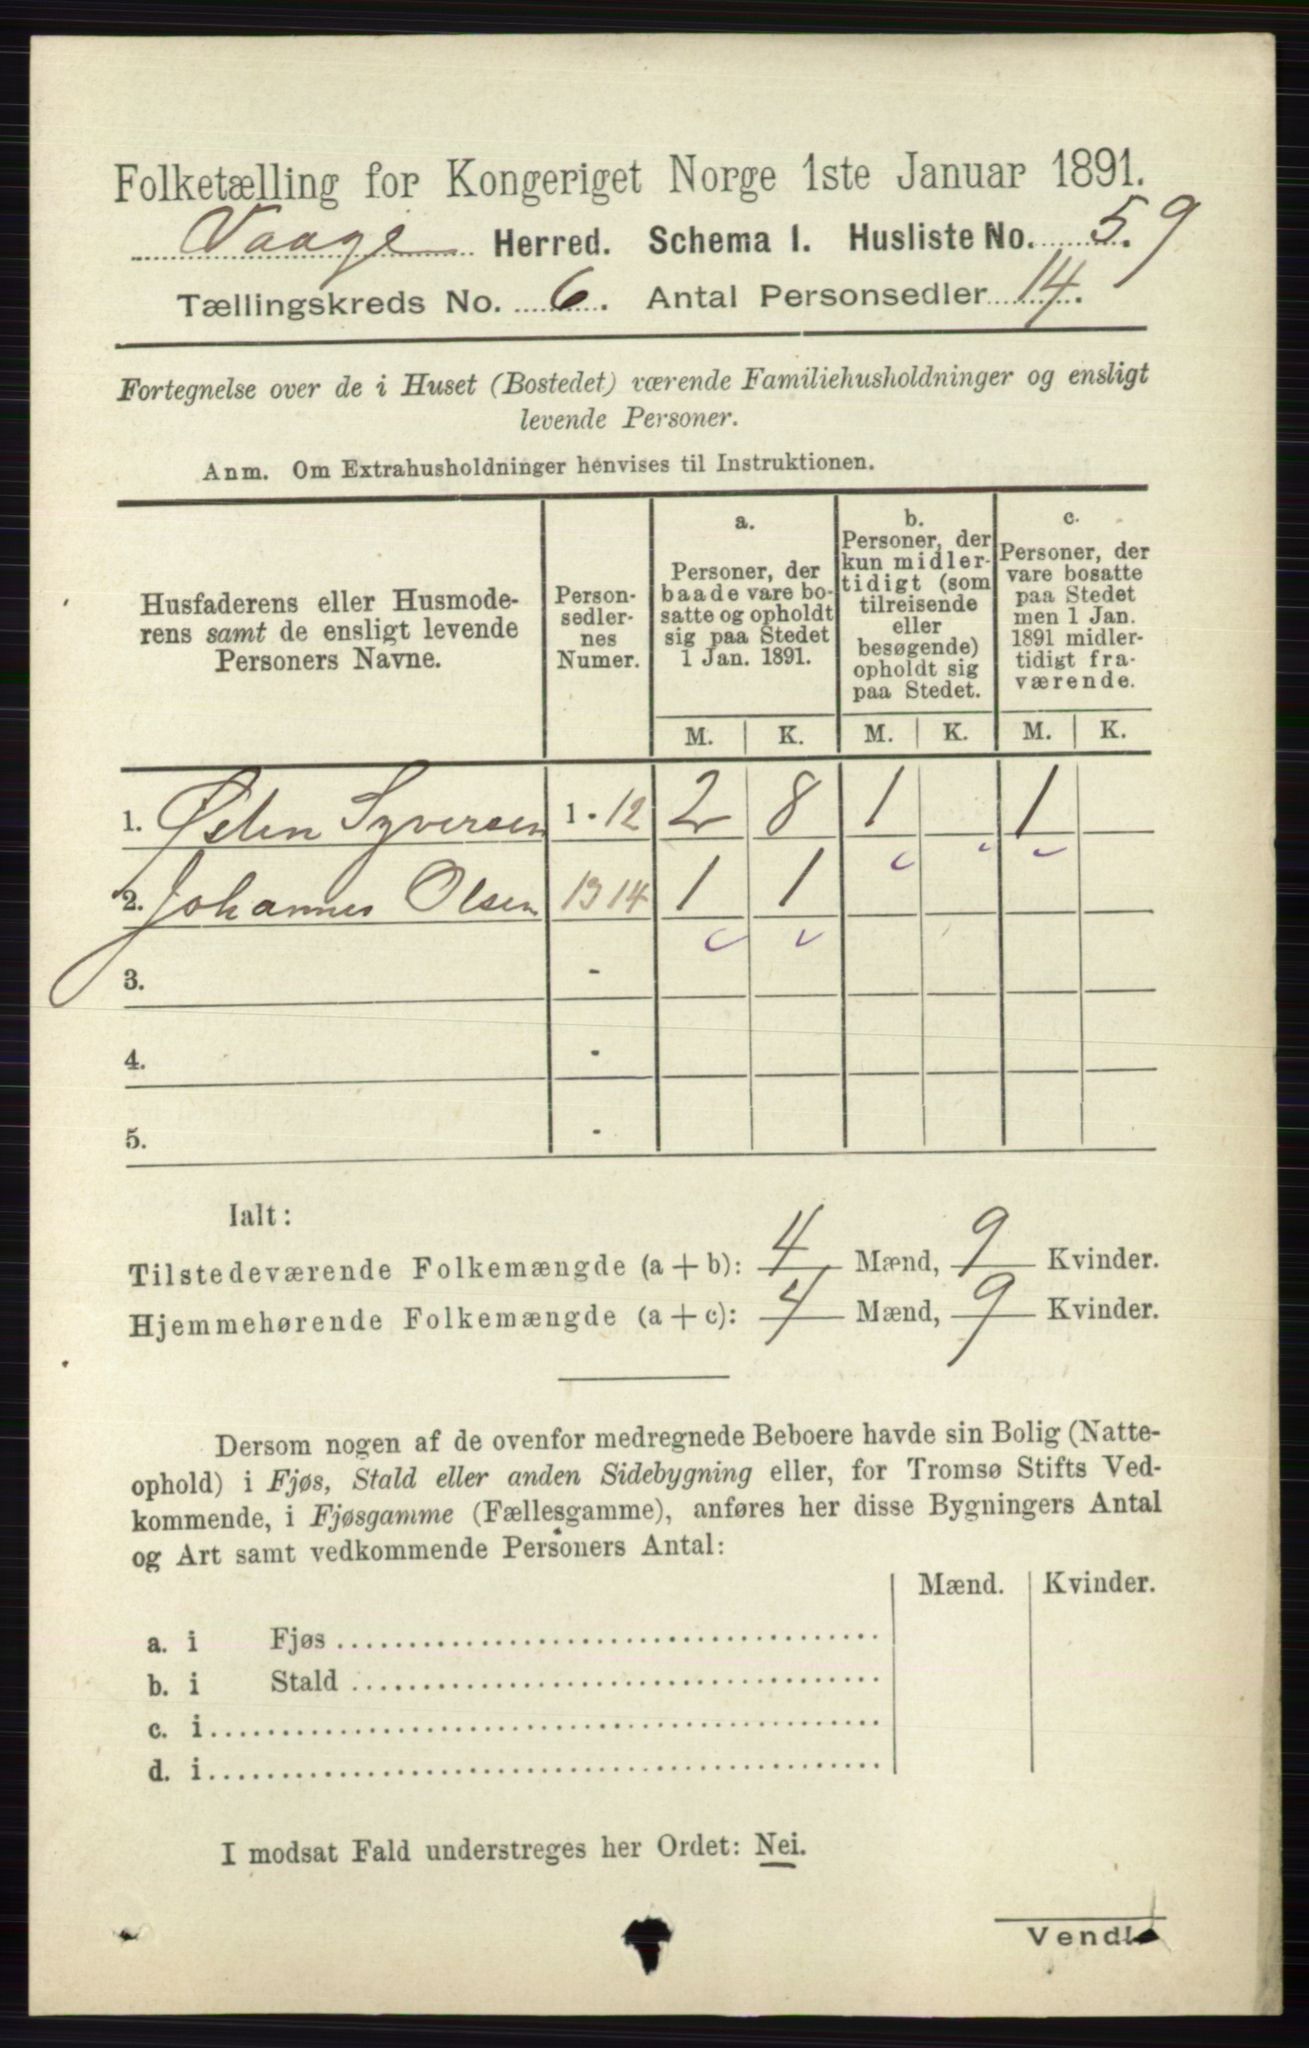 Folketælling for Kongeriget Norge 1ste Januar 1891.
Vaage Herred. Schema 1. Husliste No. 59
Tællingskreds No. 6. Antal Personsedler 14.
Fortegnelse over de i Huset (Bostedet) værende Familiehusholdninger og ensligt
levende Personer.
Anm. Om Extrahusholdninger henvises til Instruktionen.
Husfaderens eller Husmode-
rens samt de ensligt levende
Personers Navne.
Person-
sedler-
nes
Numer.
a.
Personer, der
baade vare bo-
satte og opholdt
sig paa Stedet
1 Jan. 1891.
b.
Personer, der
kun midler-
tidigt (som
tilreisende
eller
besøgende)
opholdt sig
paa Stedet.
c.
Personer, der
vare bosatte
paa Stedet
men 1 Jan.
1891 midler-
tidigt fra-
værende.
M. K. M. K. M. K.
1. Østen Syversen 1 - 12 2 8 1 1
2. Johannes Olsen 13 14 1 1
3. -
4. -
5. -
Ialt:
Tilstedeværende Folkemængde (a + b): 4 Mænd, 9 Kvinder.
Hjemmehørende Folkemængde (a + c): 4 Mænd, 9 Kvinder.
Dersom nogen af de ovenfor medregnede Beboere havde sin Bolig (Natte-
ophold) i Fjøs, Stald eller anden Sidebygning eller, for Tromsø Stifts Ved-
kommende, i Fjøsgamme (Fællesgamme), anføres her disse Bygningers Antal
og Art samt vedkommende Personers Antal:
Mænd. Kvinder.
a. i Fjøs
b. i Stald
c. i
d. i
I modsat Fald understreges her Ordet: Nei.
Vend!